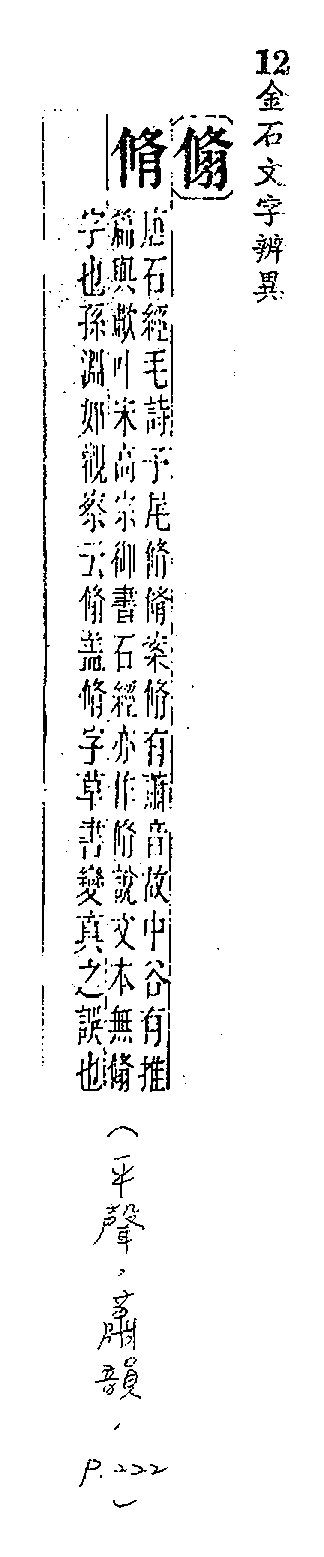 12金石文字辨異
翛
脩
唐石經毛詩予尾脩脩案脩有蕭音故中谷有推
篇與歗叶宋高宗御書石經亦作脩說文本無翛
字也孫淵如觀察云翛蓋脩字草書變真之誤也
（平聲，蕭韻，P.222）